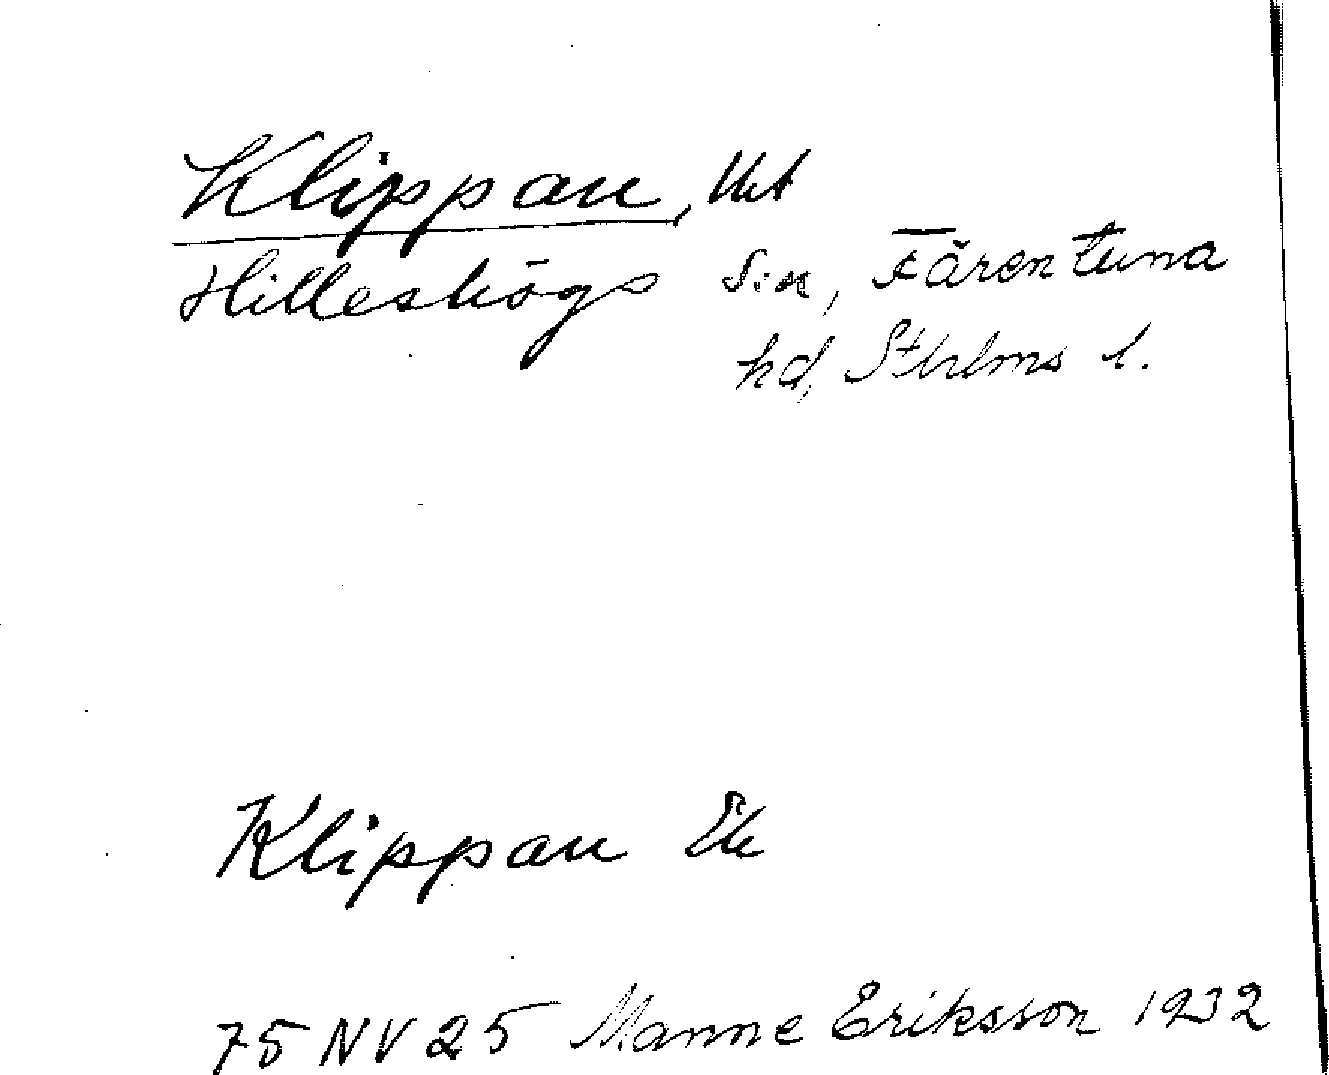 Klippan, Utt
Hilleshögs s:n, Färentuna
hd, Sthlms l.
Klippan Ek
75 NV 25 Manne Eriksson 1932